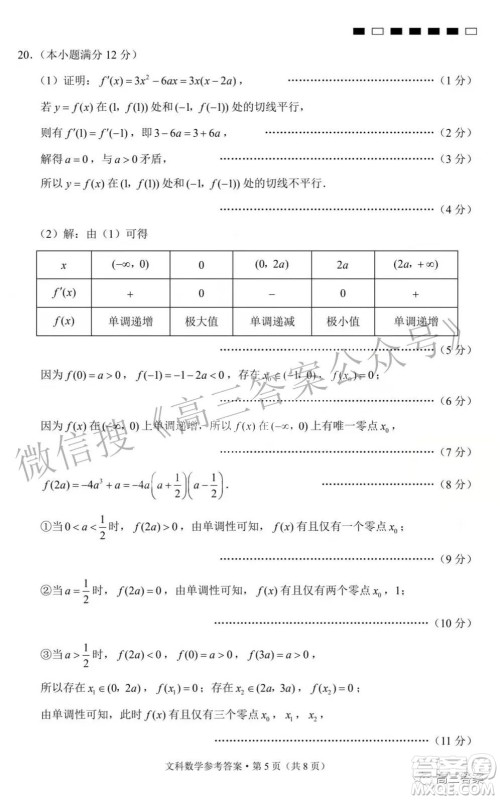 20.（本小题满分 12 分）
（1）证明：f′(x)=3x²−6ax=3x(x−2a)，………………………………（1 分）
若 y=f(x) 在 (1, f(1)) 处和 (−1, f(−1)) 处的切线平行，
则有 f′(1)=f′(−1)，即 3−6a=3+6a，………………………………（2 分）
解得 a=0，与 a>0 矛盾，………………………………（3 分）
所以 y=f(x) 在 (1, f(1)) 处和 (−1, f(−1)) 处的切线不平行.
………………………………（4 分）
（2）解：由（1）可得
x (−∞, 0) 0 (0, 2a) 2a (2a, +∞)
f′(x) + 0 − 0 +
f(x) 单调递增 极大值 单调递减 极小值 单调递增
………………………………（5 分）
因为 f(0)=a>0，f(−1)=−1−2a<0，存在 x₀∈(−1, 0)，f(x₀)=0；
………………………………（6 分）
因为 f(x) 在 (−∞, 0) 上单调递增，所以 f(x) 在 (−∞, 0) 上有唯一零点 x₀，
………………………………（7 分）
f(2a)=−4a³+a=−4a(a+1/2)(a−1/2). ………………………………（8 分）
①当 0<a<1/2 时，f(2a)>0，由单调性可知，f(x) 有且仅有一个零点 x₀；
………………………………（9 分）
②当 a=1/2 时，f(2a)=0，由单调性可知，f(x) 有且仅有两个零点 x₀，1；
………………………………（10 分）
③当 a>1/2 时，f(2a)<0，f(0)=a>0，f(3a)=a>0，
所以存在 x₁∈(0, 2a)，f(x₁)=0；存在 x₂∈(2a, 3a)，f(x₂)=0，
由单调性可知，此时 f(x) 有且仅有三个零点 x₀，x₁，x₂.
………………………………（11 分）
文科数学参考答案·第 5 页（共 8 页）
微信搜《高三答案公众号》
高三答案